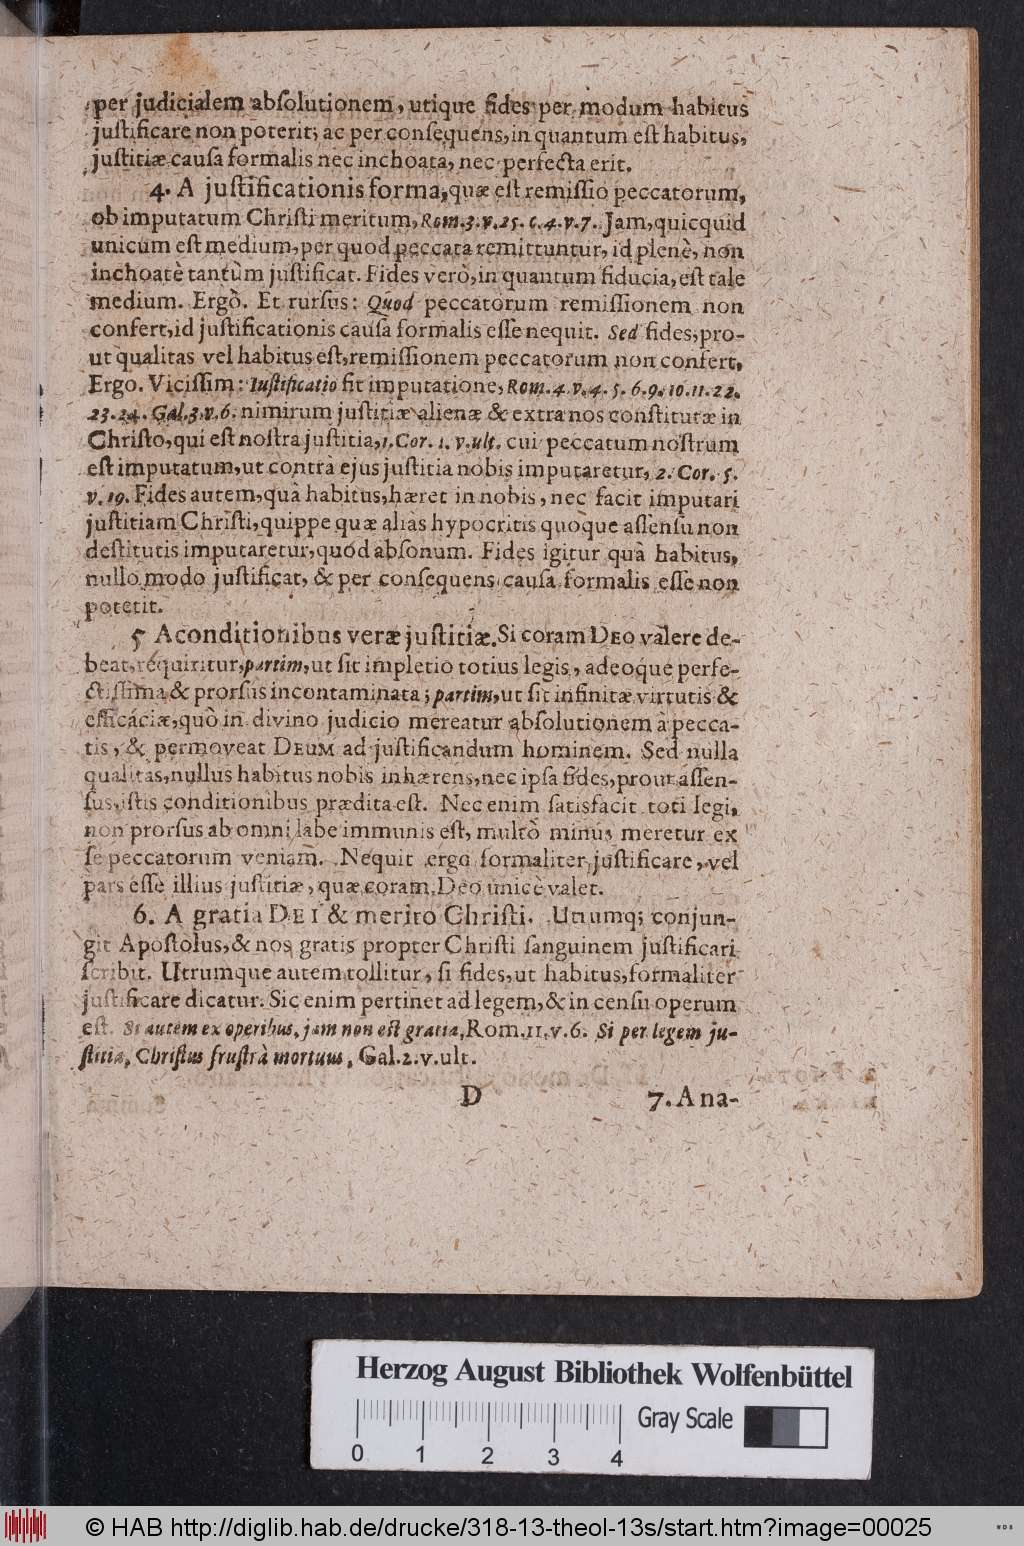 per judicialem abſolutionem, utique fides per modum habitus
juſtificare non poterit; ac per conſequens, in quantum eſt habitus,
juſtitiæ cauſa formalis nec inchoata, nec perfecta erit.
4. A juſtificationis forma, quæ eſt remiſſio peccatorum,
ob imputatum Chriſti meritum, Rom. 3. v. 25. c. 4. v. 7. Jam, quicquid
unicum eſt medium, per quod peccata remittuntur, id plenè, non
inchoatè tantùm juſtificat. Fides verò, in quantum fiducia, eſt tale
medium. Ergò. Et rurſus: Quod peccatorum remiſſionem non
confert, id juſtificationis cauſa formalis eſſe nequit. Sed fides, pro-
ut qualitas vel habitus eſt, remiſſionem peccatorum non confert,
Ergo. Viciſſim: Iuſtificatio fit imputatione, Rom. 4. v. 4. 5. 6. 9. 10. 11. 22.
23. 24. Gal. 3. v. 6. nimirum juſtitiæ alienæ & extra nos conſtitutæ in
Chriſto, qui eſt noſtra juſtitia, 1. Cor. 1. v. ult. cui peccatum noſtrum
eſt imputatum, ut contrà ejus juſtitia nobis imputaretur, 2. Cor. 5.
v. 19. Fides autem, quà habitus, hæret in nobis, nec facit imputari
juſtitiam Chriſti, quippe quæ aliàs hypocritis quoque aſſenſu non
deſtitutis imputaretur, quod abſonum. Fides igitur quà habitus,
nullo modo juſtificat, & per conſequens cauſa formalis eſſe non
poterit.
5 A conditionibus veræ juſtitiæ. Si coram DEO valere de-
beat, requiritur, partim, ut ſit impletio totius legis, adeoque perfe-
ctiſſima & prorſus incontaminata; partim, ut ſit infinitæ virtutis &
efficáciæ, quò in divino judicio mereatur abſolutionem à pecca-
tis, & permoveat DEUM ad juſtificandum hominem. Sed nulla
qualitas, nullus habitus nobis inhærens, nec ipſa fides, prout aſſen-
ſus, iſtis conditionibus prædita eſt. Nec enim ſatisfacit toti legi,
non prorſus ab omni labe immunis eſt, multò minus meretur ex
ſe peccatorum veniam. Nequit ergo formaliter juſtificare, vel
pars eſſe illius juſtitiæ, quæ coram Deo unicè valet.
6. A gratia DEI & merito Chriſti. Utrumq; conjun-
git Apoſtolus, & nos gratis propter Chriſti ſanguinem juſtificari
ſcribit. Utrumque autem tollitur, ſi fides, ut habitus, formaliter
juſtificare dicatur. Sic enim pertinet ad legem, & in cenſu operum
eſt. Si autem ex operibus, jam non eſt gratia, Rom. 11. v. 6. Si per legem ju-
ſtitia, Chriſtus fruſtrà mortuus, Gal. 2. v. ult.
D 7. Ana-
Herzog August Bibliothek Wolfenbüttel
Gray Scale
0 1 2 3 4
© HAB http://diglib.hab.de/drucke/318-13-theol-13s/start.htm?image=00025